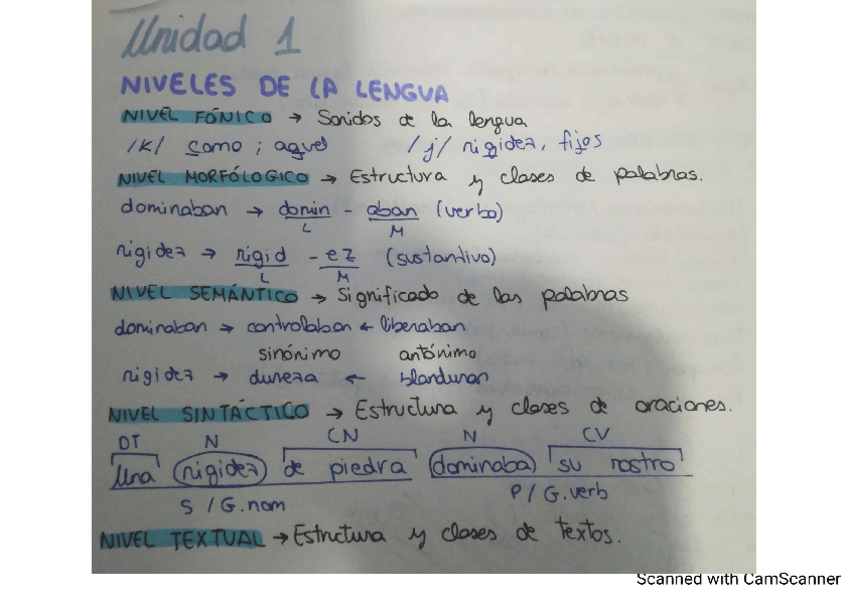 Unidad 1
NIVELES DE LA LENGUA
NIVEL FÓNICO → Sonidos de la lengua
/K/ como ; aquel /j/ rigidez, fijos
NIVEL MORFÓLOGICO → Estructura y clases de palabras.
dominaban → domin - aban (verbo)
L M
rigidez → rigid - ez (sustantivo)
L M
NIVEL SEMÁNTICO → Significado de las palabras
dominaban → controlaban ← liberaban
sinónimo antónimo
rigidez → dureza ← blanduran
NIVEL SINTÁCTICO → Estructura y clases de oraciones.
DT N CN N CV
Una rigidez de piedra dominaba su rostro
S / G.nom P / G.verb
NIVEL TEXTUAL → Estructura y clases de textos.
Scanned with CamScanner